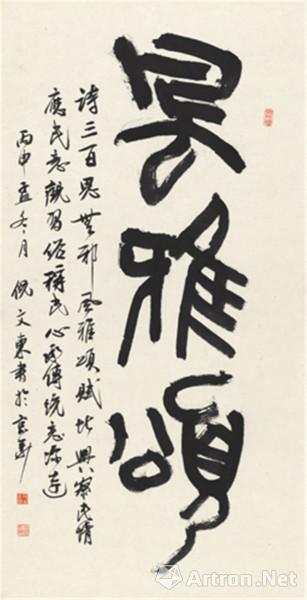 風雅頌
詩三百思無邪風雅頌賦比興察民情
應民意觀習俗得民心承傳統意深遠
丙申孟冬月倪文東書於京華
Artron.Net